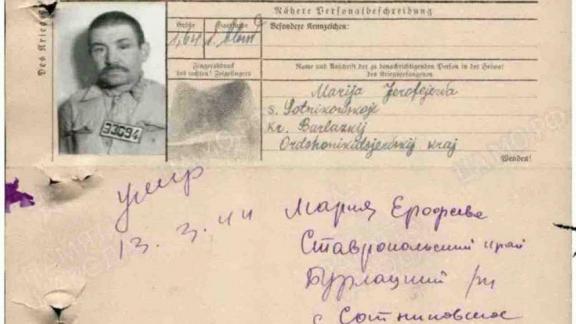 Nähere Personalbeschreibung
Größe
Haarfarbe
Besondere Kennzeichen:
1,64
blond
Des Krieg
33694
Fingerabdruck
des rechten! Zeigefingers
Name und Anschrift der zu benachrichtigenden Person in der Heimat
des Kriegsgefangenen
Marija Jerofejewa
s. Sotnikowskoje
Kr. Burlazkij
Ordshonikidsjewskij kraj
Wenden!
умер
13.3.44
Мария Ерофеева
Ставропольский край
Бурлацкий рн
с Сотниковское